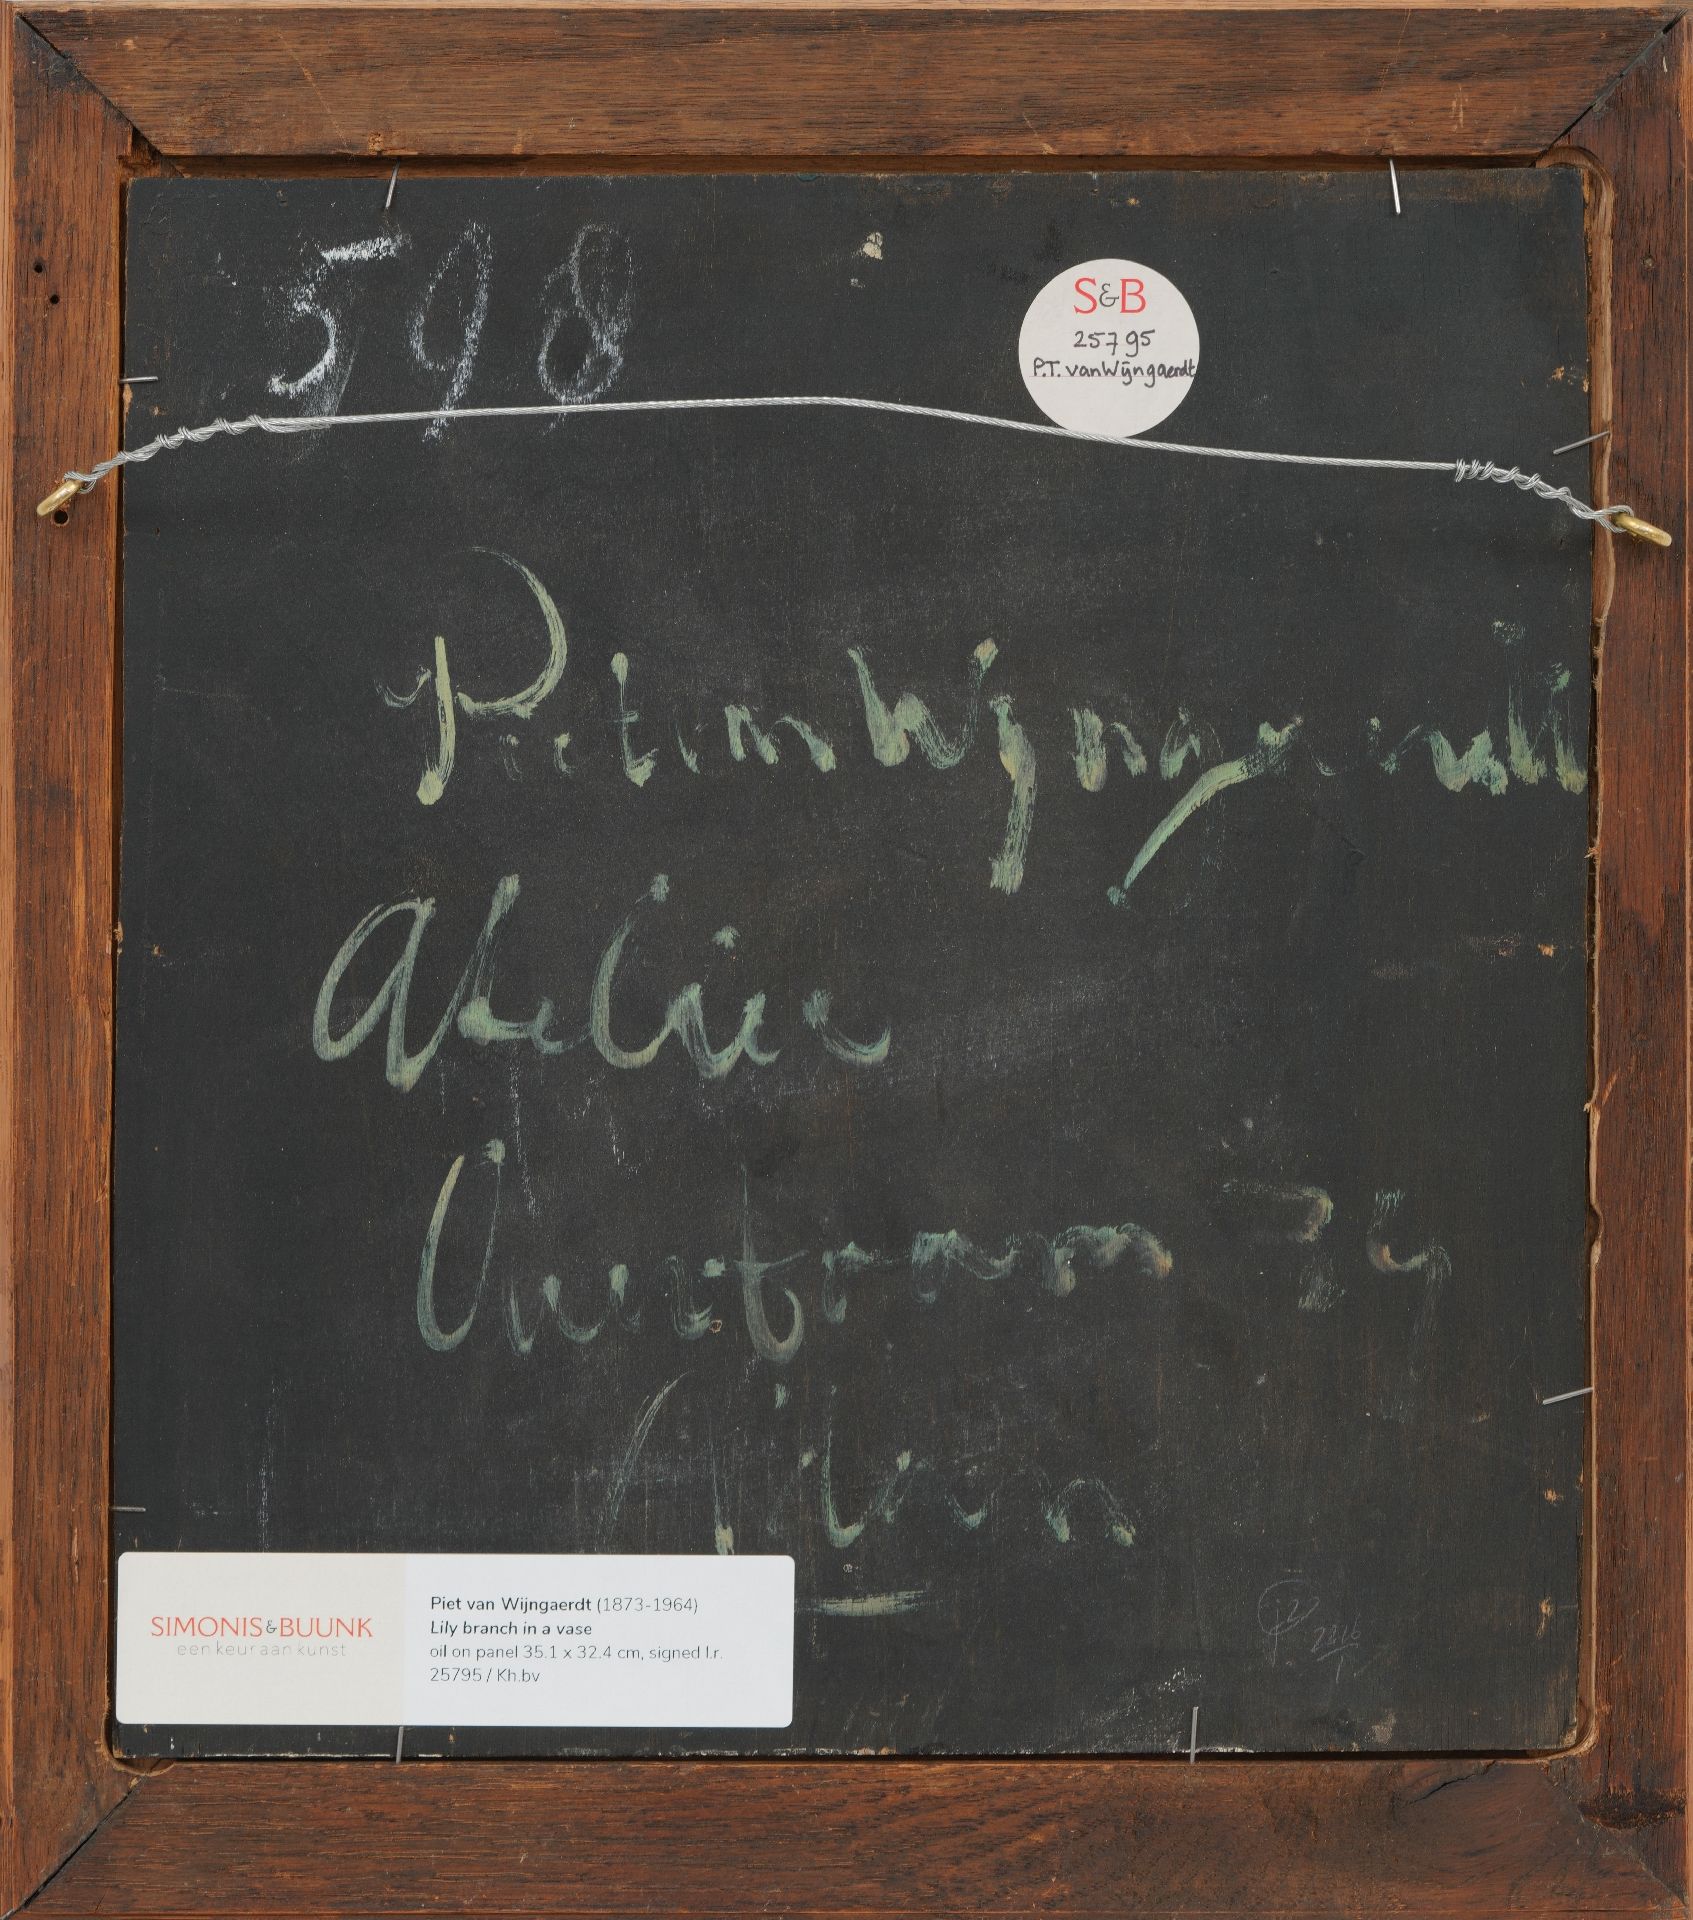 598
S&B
25795
P.T. van Wijngaerdt
Piet van Wijngaerdt
Atelier
Overtoom
SIMONIS&BUUNK
een keur aan kunst
Piet van Wijngaerdt (1873-1964)
Lily branch in a vase
oil on panel 35.1 x 32.4 cm, signed l.r.
25795 / Kh.bv